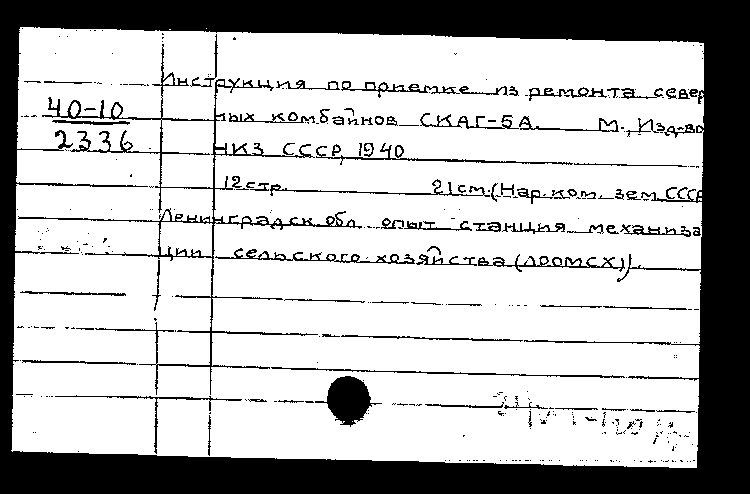 40-10
2336
Инструкция по приемке из ремонта север
ных комбайнов СКАГ-5А. М., Изд-во
НКЗ СССР, 1940
12 стр. 21 см. (Нар. ком. зем. СССР
Ленинградск. обл. опыт станция механиза
ции сельского хозяйства (ЛООМСХ)).